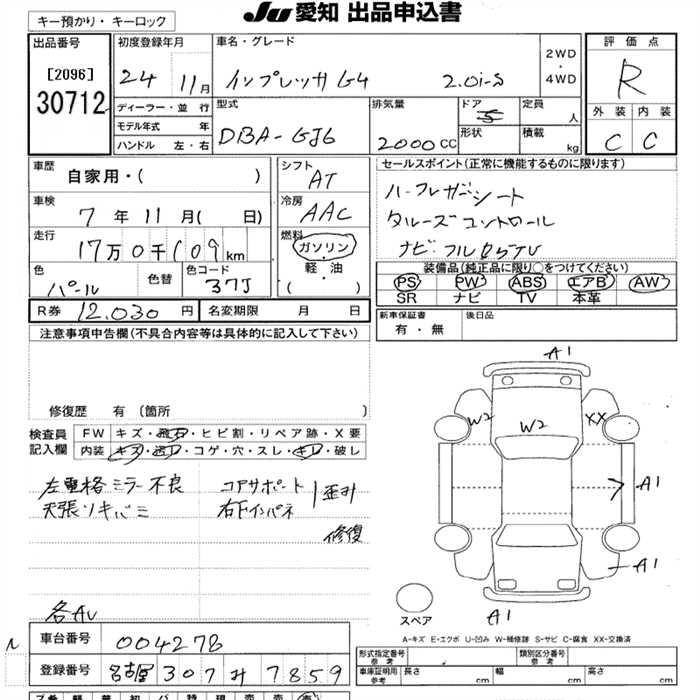 JU 愛知 出品申込書
キー預かり・キーロック
出品番号
[2096]
30712
初度登録年月
24年11月
車名・グレード
インプレッサ G4 2.0i-S
2WD
・
4WD
評価点
R
外装 内装
C C
ディーラー・並行
モデル年式 年
ハンドル 左・右
型式
DBA-GJ6
排気量
2000CC
ドア
5
形状
定員
人
積載
kg
車歴
自家用・( )
シフト
AT
セールスポイント(正常に機能するものに限ります)
ハーフレザーシート
クルーズコントロール
ナビ フルセTV
車検
7年11月( 日)
冷房
AAC
走行
17万0千109km
燃料
ガソリン
軽・油
( )
色
パール
色替
色コード
37J
装備品(純正品に限り○をつけてください)
PS PW ABS エアB AW
SR ナビ TV 本革
R券 12,030円
名変期限 月 日
新車保証書
有・無
後日品
注意事項申告欄(不具合内容等は具体的に記入して下さい)
修復歴 有(箇所 )
検査員
記入欄
FW キズ・飛石・ヒビ割・リペア跡・X要
内装 キズ・汚レ・コゲ・穴・スレ・キレ・破し
左電格ミラー不良
天張リキバミ
コアサポート
右下インパネ
歪み
修復
各AU
A1
W2
W2
XX
A1
A1
A1
スペア
A-キズ E-エクボ U-凹み W-補修跡 S-サビ C-腐食 XX-交換済
車台番号 004278
登録番号 名古屋 307 サ 7859
形式指定番号
参考
類別区分番号
参考
車庫証明用
参考
長さ cm 幅 cm 高さ cm